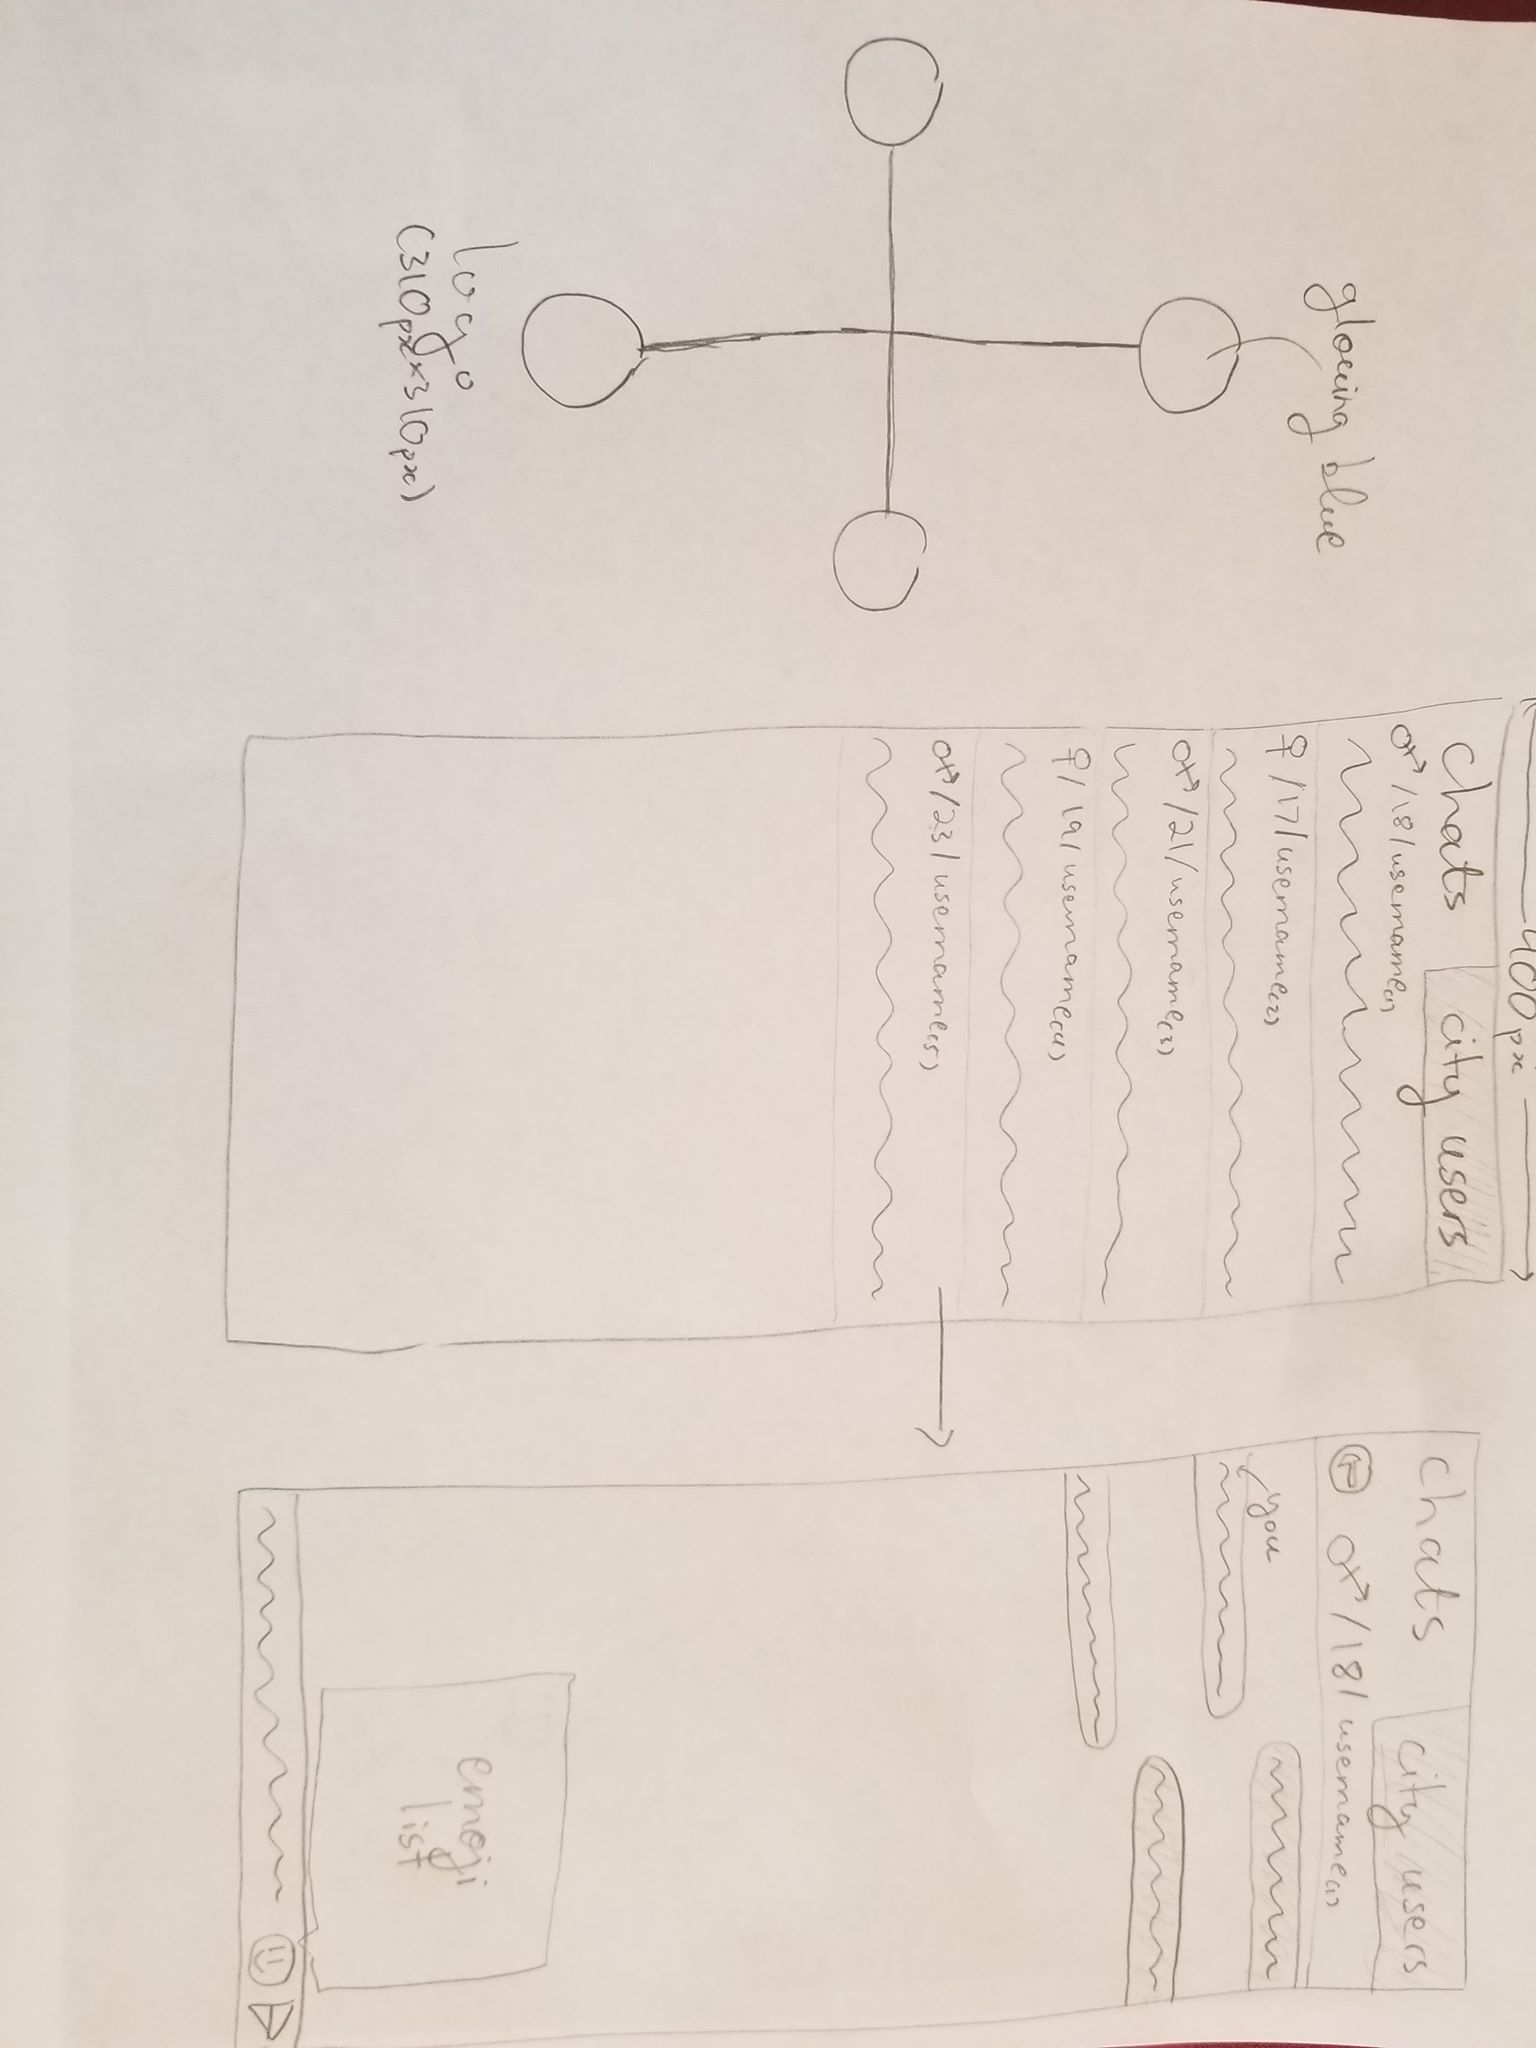 glowing blue
logo
(310px×310px)
400px
chats
city users
♂/18/username(1)
♀/17/username(2)
♂/21/username(3)
♀/19/username(4)
♂/23/username(5)
chats
city users
♂/18/username(1)
you
emoji
list